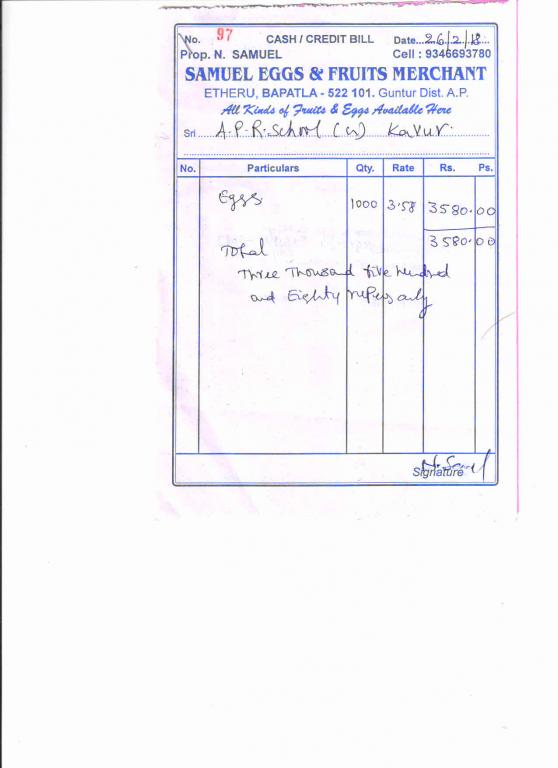 No. 97 CASH / CREDIT BILL Date...26/2/18...
Prop. N. SAMUEL Cell : 9346693780
SAMUEL EGGS & FRUITS MERCHANT
ETHERU, BAPATLA - 522 101. Guntur Dist. A.P.
All Kinds of Fruits & Eggs Available Here
Sri A.P.R. School (G) Kavur.
No. Particulars Qty. Rate Rs. Ps.
Eggs 1000 3.58 3580.00
3580.00
Total
Three Thousand five hundred
and Eighty rupees only
N. Samuel
Signature